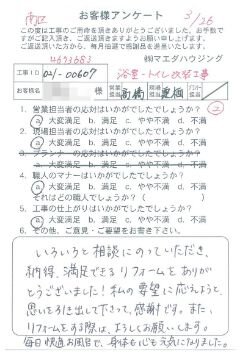 南区
お客様アンケート
3/26
この度は工事のご用命を頂きありがとうございました。お手数で
すがご記入頂き、ご返送頂きますようお願い申し上げます。
ご返送頂いた方から、毎月抽選で感謝品を差し上げます。
4693683
㈱マエダハウジング
工事ID 021-00607
浴室・トイレ改装工事
お客様名
様
営業担当
現場担当
②
1. 営業担当者の応対はいかがでしたでしょうか?
ⓐ大変満足 b. 満足 c. やや不満 d. 不満
2. 現場担当者の応対はいかがでしたでしょうか?
ⓐ大変満足 b. 満足 c. やや不満 d. 不満
3. プランナーの応対はいかがでしたでしょうか?
a. 大変満足 b. 満足 c. やや不満 d. 不満
4. 職人のマナーはいかがでしたでしょうか?
ⓐ大変満足 b. 満足 c. やや不満 d. 不満
それはどの職人でしょう( )
5. 工事の仕上がりはいかがでしたでしょうか?
ⓐ大変満足 b. 満足 c. やや不満 d. 不満
6. その他、ご意見・ご要望をお書き下さい。
いろいろと相談にのっていただき、
納得、満足できるリフォームをありが
とうございました!私の要望に応えようと、
思いを引き出して下さって、感謝です。また、
リフォームをする際は、よろしくお願いします。
毎日快適お風呂で、身体も心も元気になりました。